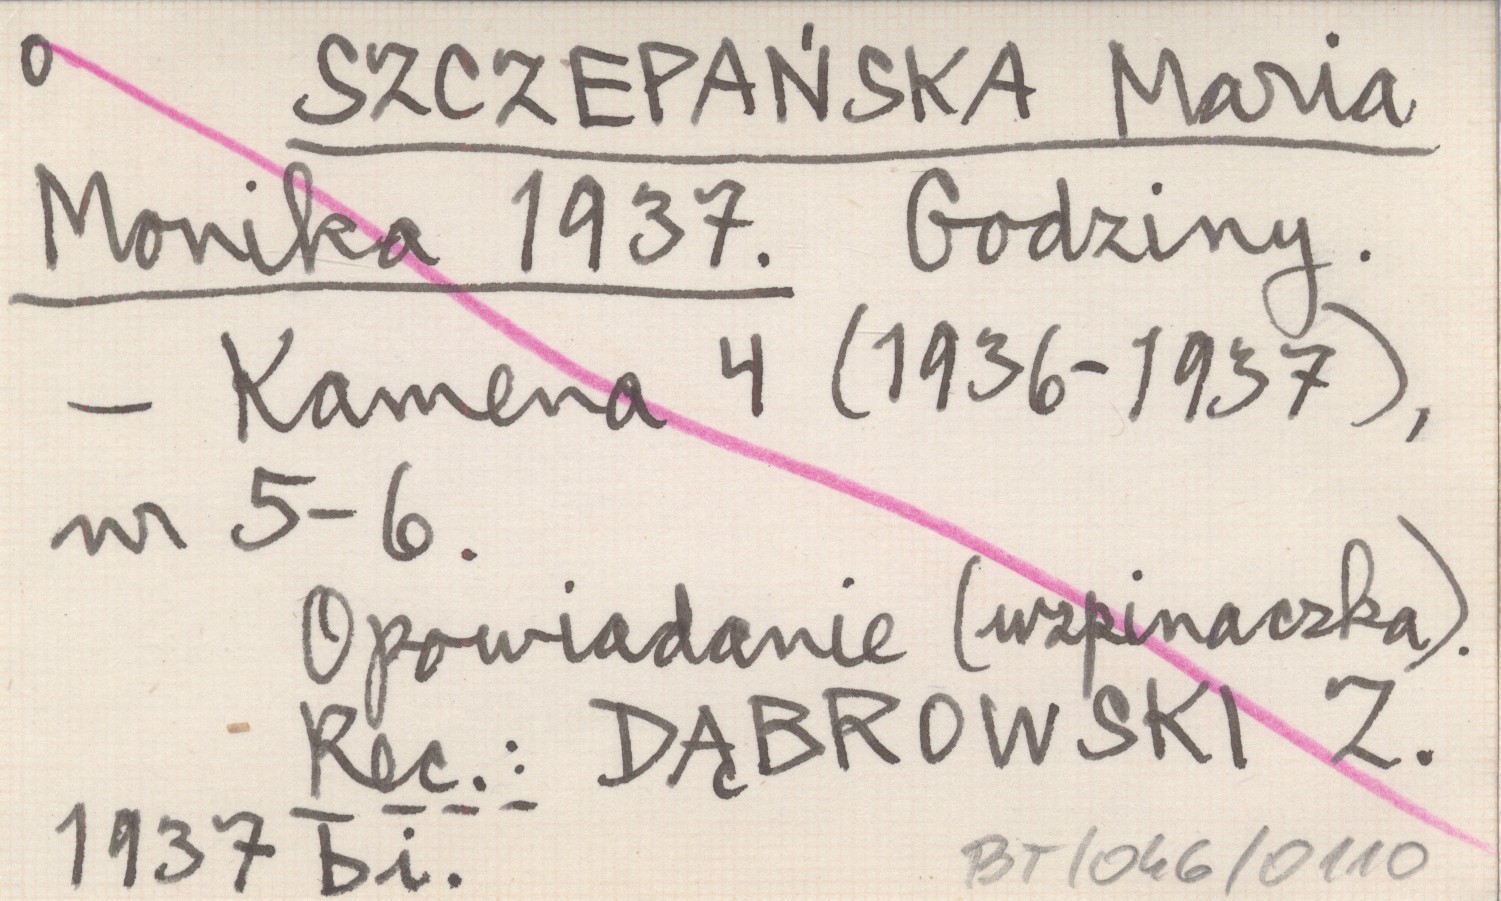 o SZCZEPAŃSKA Maria
Monika 1937. Godziny.
— Kamena 4 (1936-1937),
nr 5-6.
Opowiadanie (wspinaczka).
Rec.: DĄBROWSKI Z.
1937 bi.
BT/046/0110